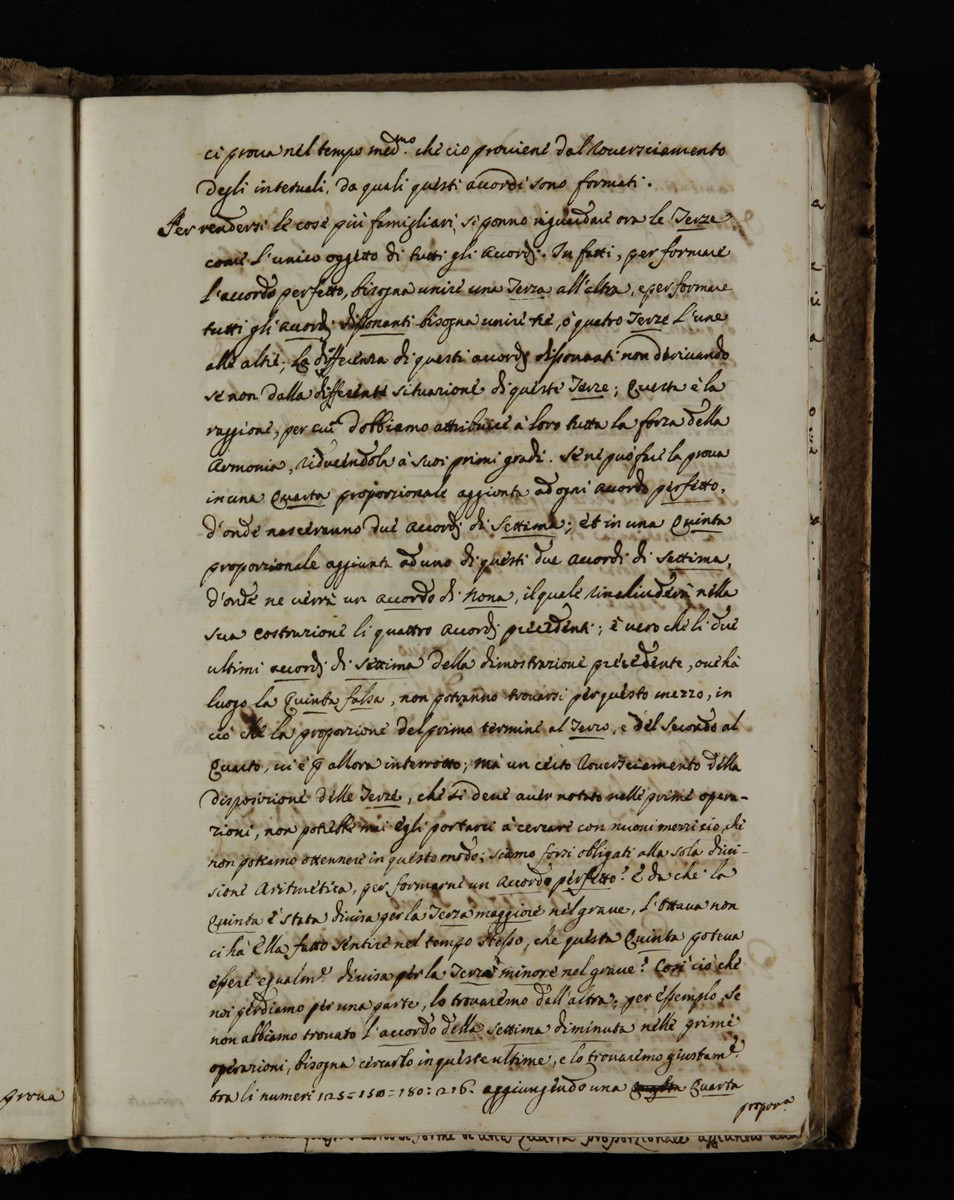 ci prova nel tempo med.mo che cio proviene dal Roversciamento
degli intervali, da quali questi accordi sono formati.
Per rendersi le cose più famigliari, si ponno riguardare ora le Terze
come l'unico oggetto di tutti gli Accordj. In fatti, per formare
l'accordo perfetto, bisogna unire una Terza all'altra, e per formare
tutti gli Accordj dissonanti bisogna unire tré, ó quatro Terze l'une
alle altre; La differenza di questi accordj dissonanti non derivando
se non dalla differente situazione di queste Terze; Questa è la
raggione, per cui dobbiamo attribuire à loro tutta la forza della
Armonia, riducendola à suoi primi gradi. Se ne può fare la prova
in una Quarta proporzionale aggiunta ad ogni Accordo perfetto,
d'onde nasceranno due Accordj di Settima; et in una Quinta
proporzionale aggiunta ad uno di questi due Accordi di Settima,
d'onde ne verrà un Accordo di Nona, il quale rinchiuderà nella
sua costruzione li quattro Accordj precedenti; è vero che li due
ultimi accordj di Settima della dimostrazione precedente, ove hà
luogo la Quinta falsa, non potranno trovarsi per questo mezzo, in
ciò che la proporzione del primo termine al Terzo, e del Secondo al
Quarto, vi è p allora interrotto; mà un certo Roversciamento della
disposizione delle Terze, che si deve aver notato nelle prime opera-
zioni, non potrebbe mai egli portarci à cercare con nuovi mezzi ciò, che
non potiamo ottennere in questo modo; siamo forsi obligati alla sola divi-
sione Aritmetica, per formarne un Accordo perfetto? E da che la
Quinta è stata divisa per la Terza maggiore nel grave, l'Ottava non
ci hà ella fatto sentire nel tempo stesso, che questa Quinta poteva
essere egualm.e divisa per la Terza minore nel grave? Così ciò che
noi perdiamo per una parte, lo trovaremo dall'altra; per essempio, se
non abbiamo trovato l'accordo della Settima diminuta nelle prime
operazioni, bisogna cercarlo in queste ultime, e lo trovaremo giustam.e
tra li numeri 125=150=180:216. aggiungendo una Quarta
propor.a
prova